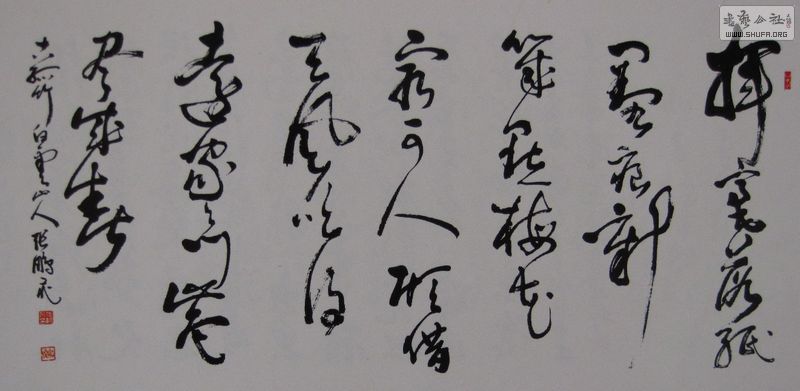 書藝公社
WWW.SHUFA.ORG
揮毫落紙
墨痕新
幾點梅花
最可人願借
天風吹得
遠家々門巷
盡成春
白雲山人張鵬飛